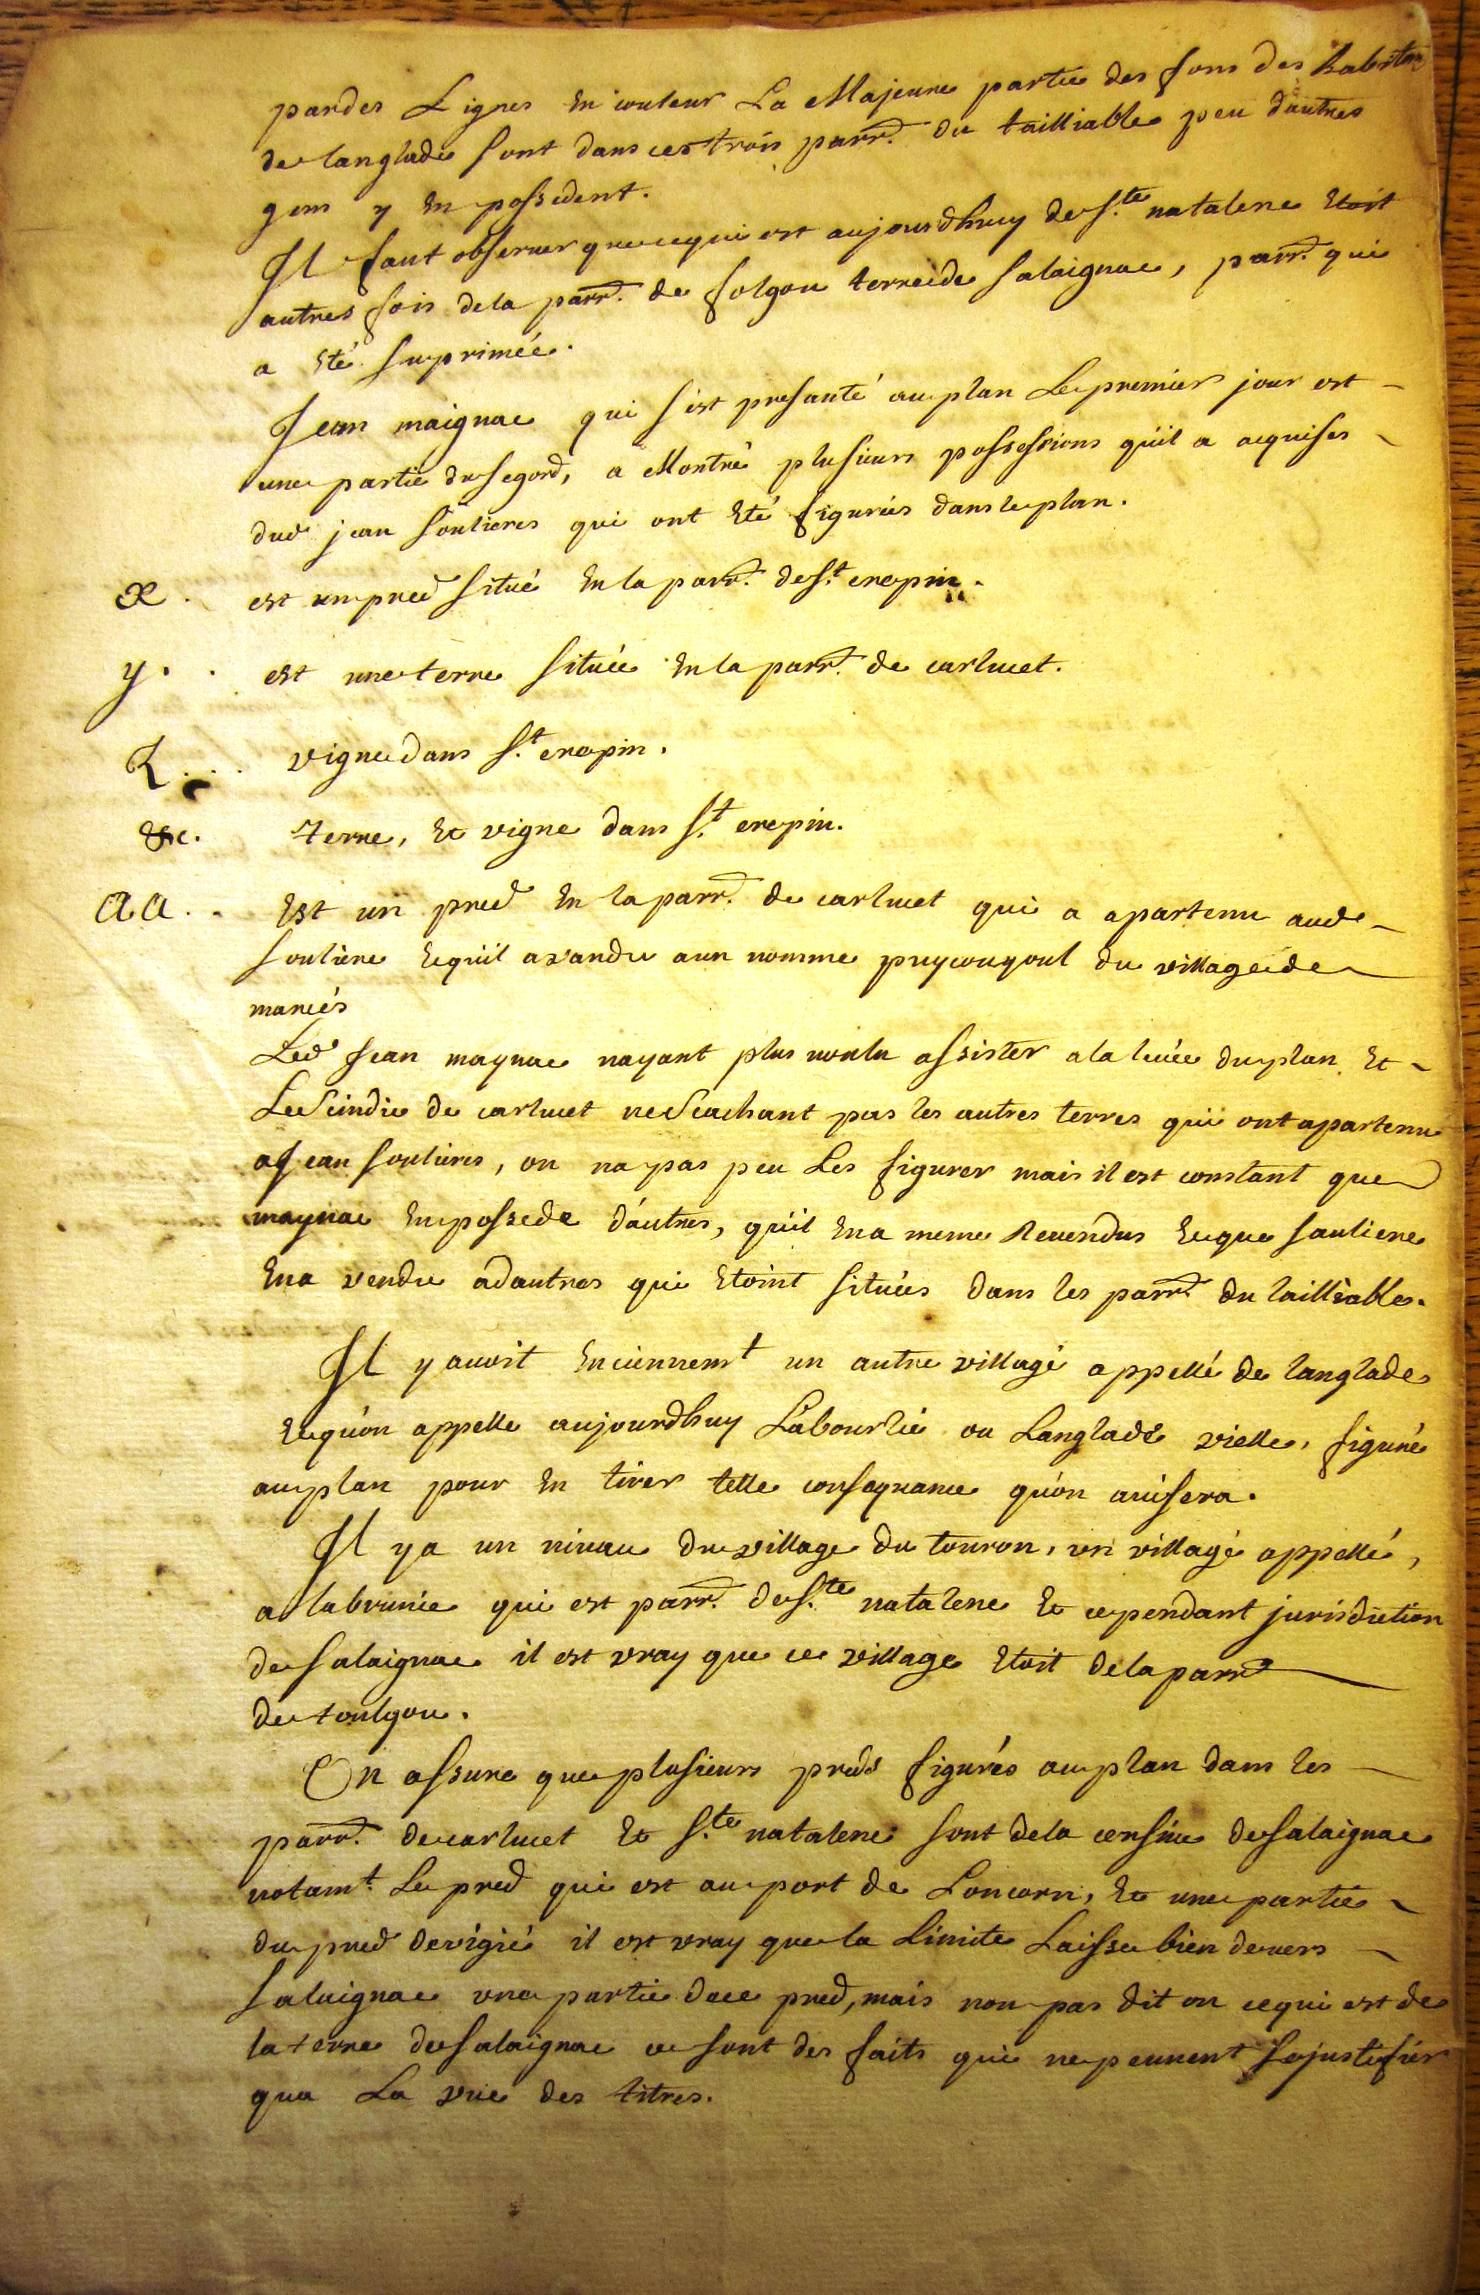 pardes Lignes En couleur La Majeure partie des fons des habitans
de langlade sont dans ces trois parr. du tailliable peu dautres
gens y En possedent.
Il faut observer que ce qui est aujourdhuy de S.te natalene Etoit
autres fois de la parr. de folgou terre de Salaignac, parr. qui
a Eté suprimée.
Jean maignac qui s'est presanté au plan Le premier jour est
une partie du segord, a Montré plusieurs possessions quil a acquises
dud jean soulieres qui ont Eté figurées dans le plan.
x. est un pred situé En la parr. de S.t crepin.
y. est une terre située En la parr. de carlucet.
Z. vigne dans S.t crepin.
&c. terre, Et vigne dans S.t crepin.
aa. Est un pred En la parr. de carlucet qui a apartenu aud
souliere Et quil a vandu a un nomme puycougoul du village de
maries
Led Jean maynac nayant plus voulu assister a la levée du plan Et
Le Scindic de carlucet ne Scachant pas les autres terres qui ont apartenu
a Jean soulieres, on na pas peu Les figurer mais il est constant que
maynac En possede d'autres, quil En a meme Revendus Et que souliere
En a vendu a dautres qui Etoint situées dans les parr. du tailliable.
Il y avoit Enciennem.t un autre village appellé de langlade
Et qu'on appelle aujourdhuy Labourlie ou Langlade vielle, figuré
au plan pour En tirer telle consequance qu'on avisera.
Il y a un niveau du village du touron, un village appellé,
a labrunie qui est parr. de S.te natalene Et cependant jurisdiction
de Salaignac il est vray que ce village Etoit de la parr.
de toulgou.
On assure que plusieurs preds figurés au plan dans les
parr. de carlucet Et S.te natalene sont de la censive de Salaignac
notam.t Le pred qui est au port de Loncorn, Et une partie
du pred de vigié il est vray que la Limite Laisse bien devers
Salaignac une partie de ce pred, mais non pas dit on ce qui est de
la terre de Salaignac ce sont des faits qui ne peuvent se justifier
qua La vue des titres.